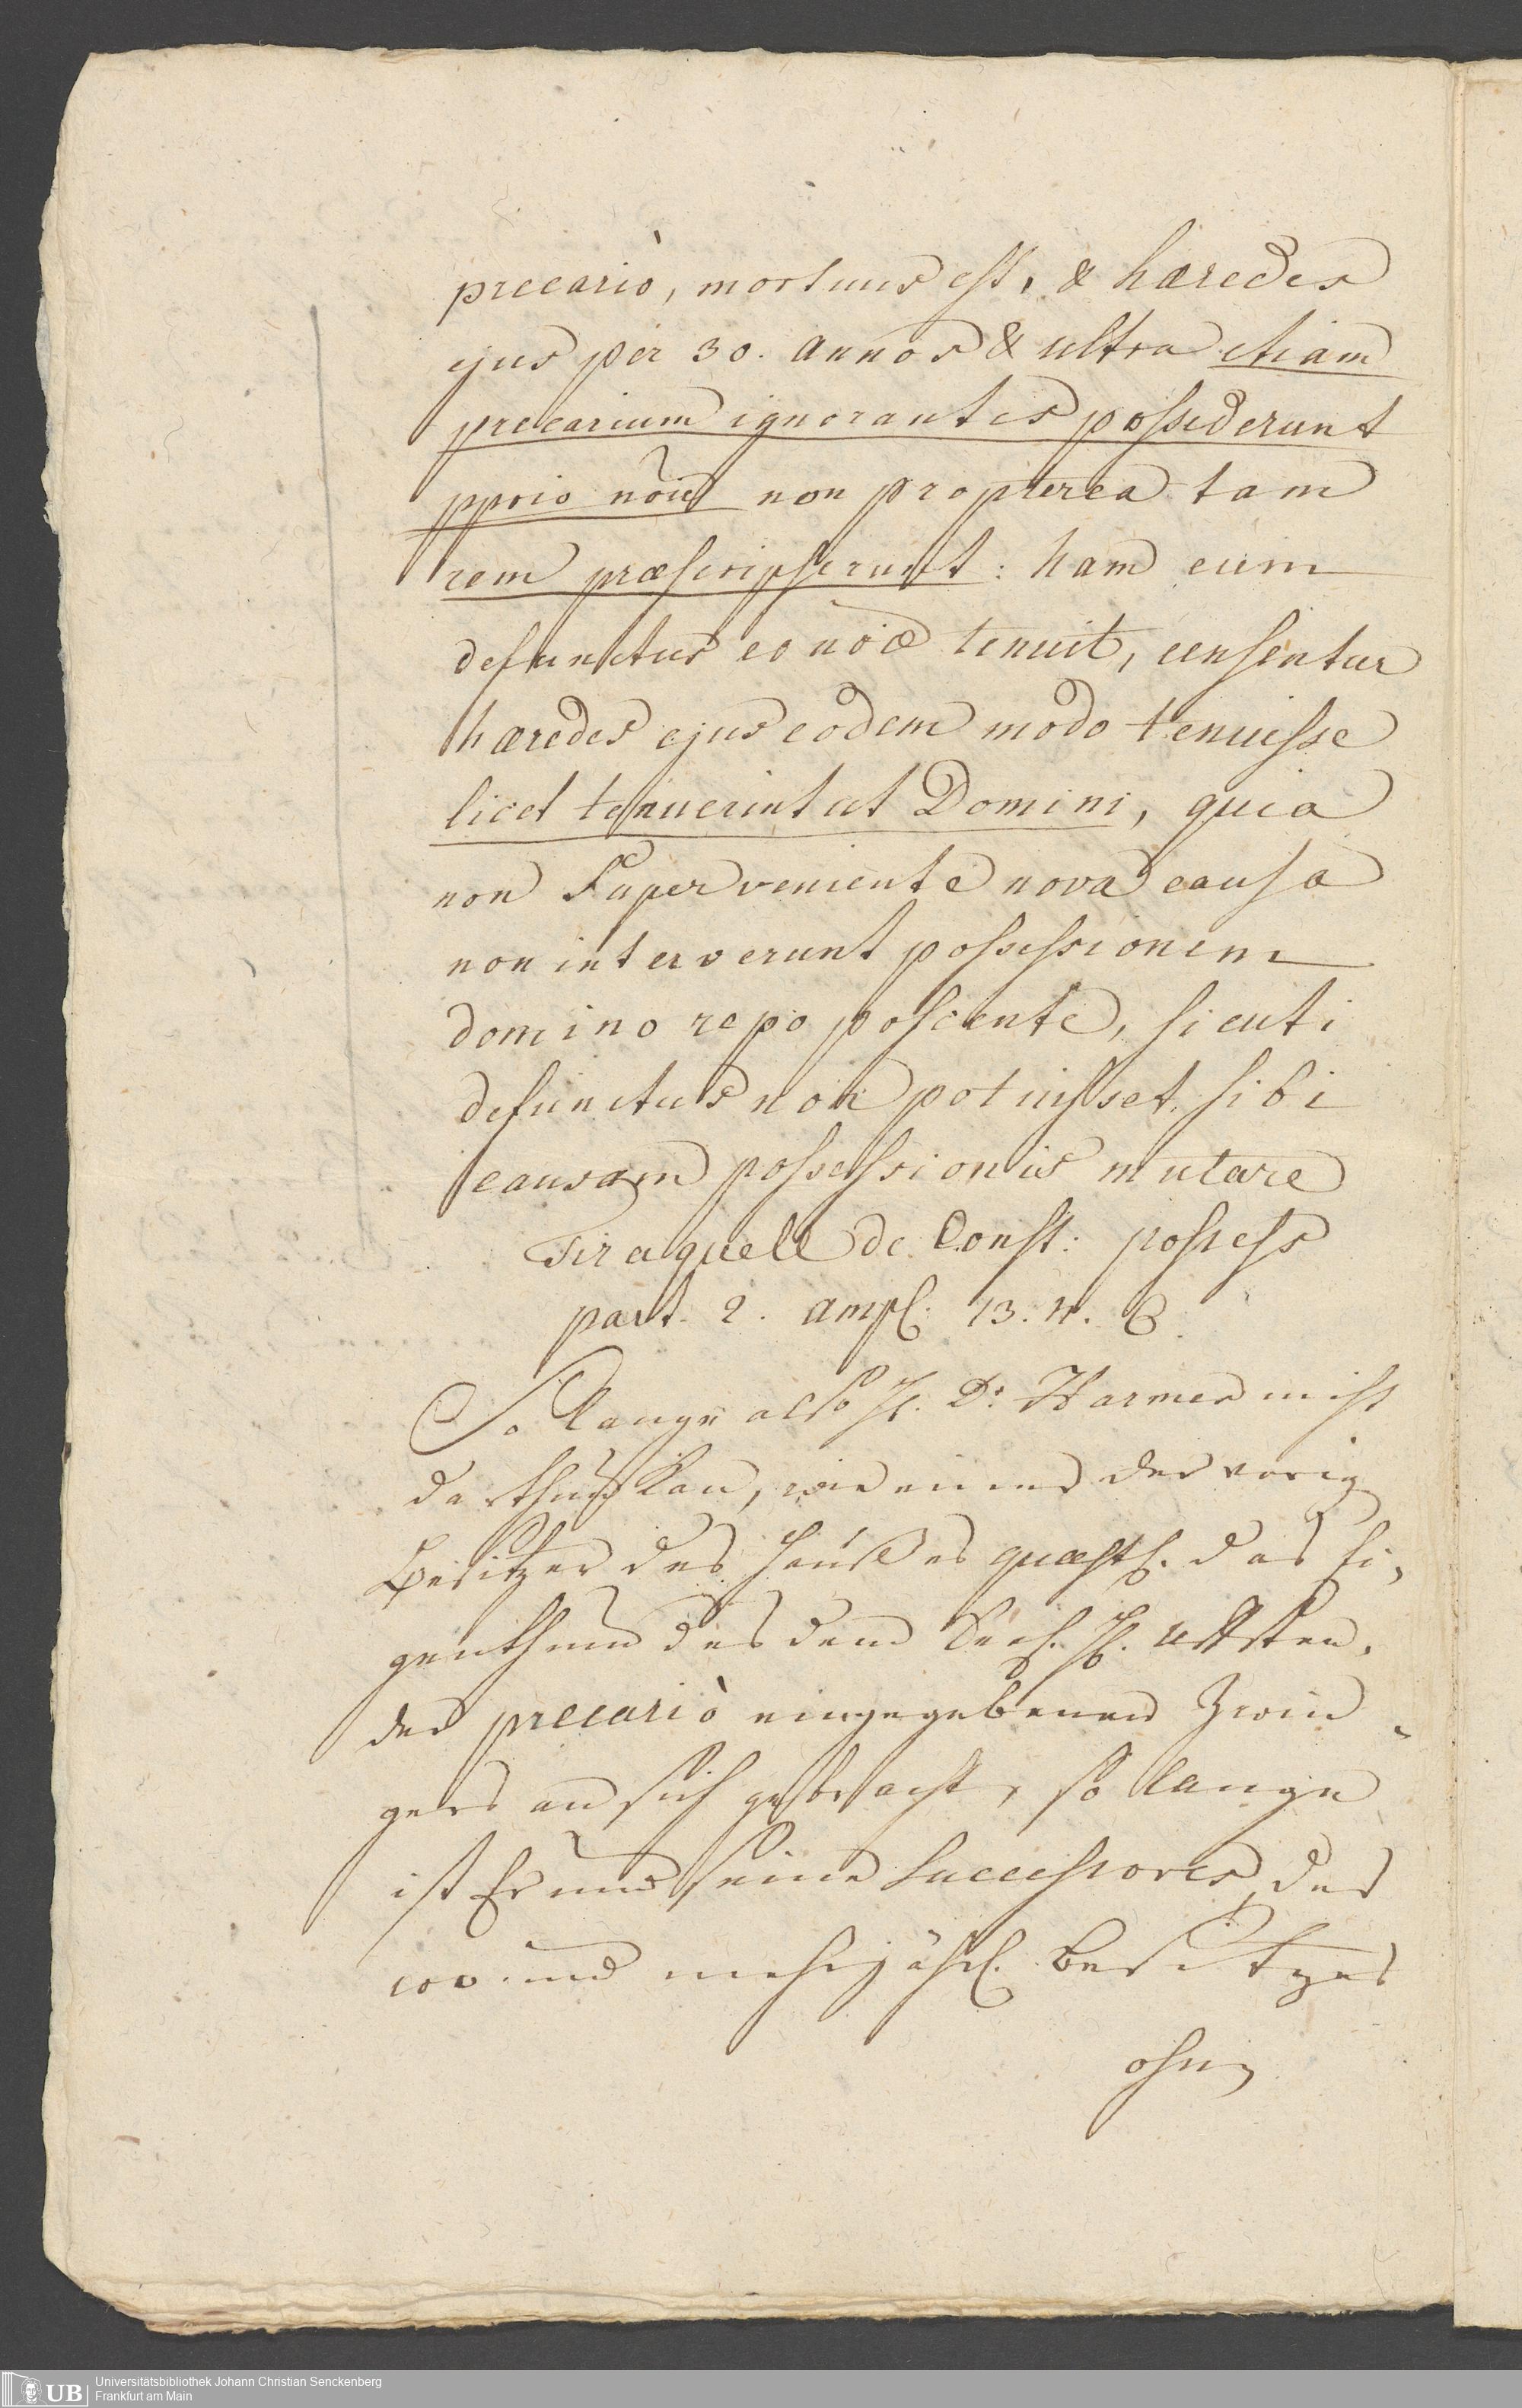 precariò, mortuus est, & hæredes
ejus per 30. annos & ultra etiam
precarium ignorantes possederunt
pprio nõie non propterea tam
rem præscripserunt: nam cum
defunctus eo nõie tenuit, censentur
hæredes ejus eodem modo tenuisse
licet tenuerint ut Domini, quia
non superveniente nova causa
non interverunt possessionem
domino repo poscente, sicuti
defunctus non potuisset sibi
causam possessionis mutare
Tiraquell de Const: possess
part. 2. ampl. 13. n. 6.
So lange also H. Dr. Harmes nicht
darthun kan, wie einer der vorig
Besitzer des Haußes quæstl. das Ei„
genthum des dem Seel. H. Uffen„
der precariò eingegebenen Zwin„
gers an sich gebracht, so lange
ist Er und seine Successores des
100 und mehrjährl. Besitzes
ohn„
Universitätsbibliothek Johann Christian Senckenberg
UB Frankfurt am Main